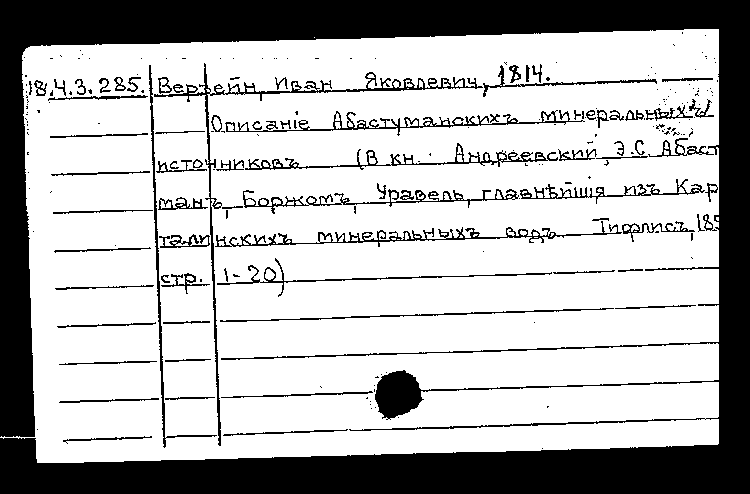 18.4.3.285. Верзейн, Иван Яковлевич, 1814.
Описаніе Абастуманскихъ минеральныхъ
источниковъ (В кн. Андреевский, Э.С. Абаст
манъ, Боржомъ, Уравель, главнѣйшія изъ Кар
талинскихъ минеральныхъ водъ Тифлисъ, 185
стр. 1-20)